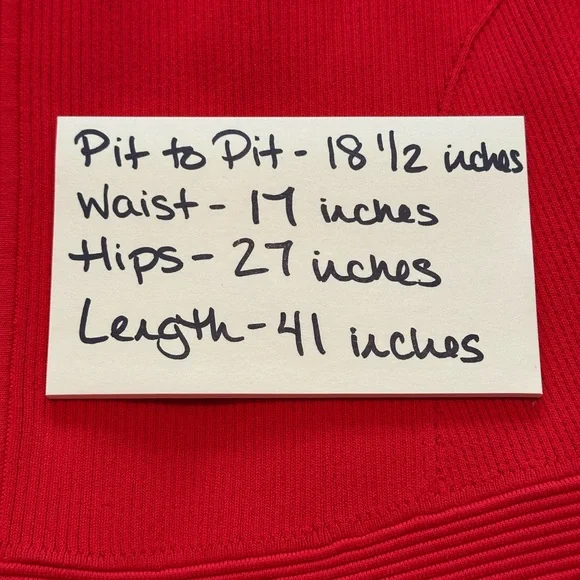 Pit to Pit - 18 1/2 inches
Waist - 17 inches
Hips - 27 inches
Length - 41 inches